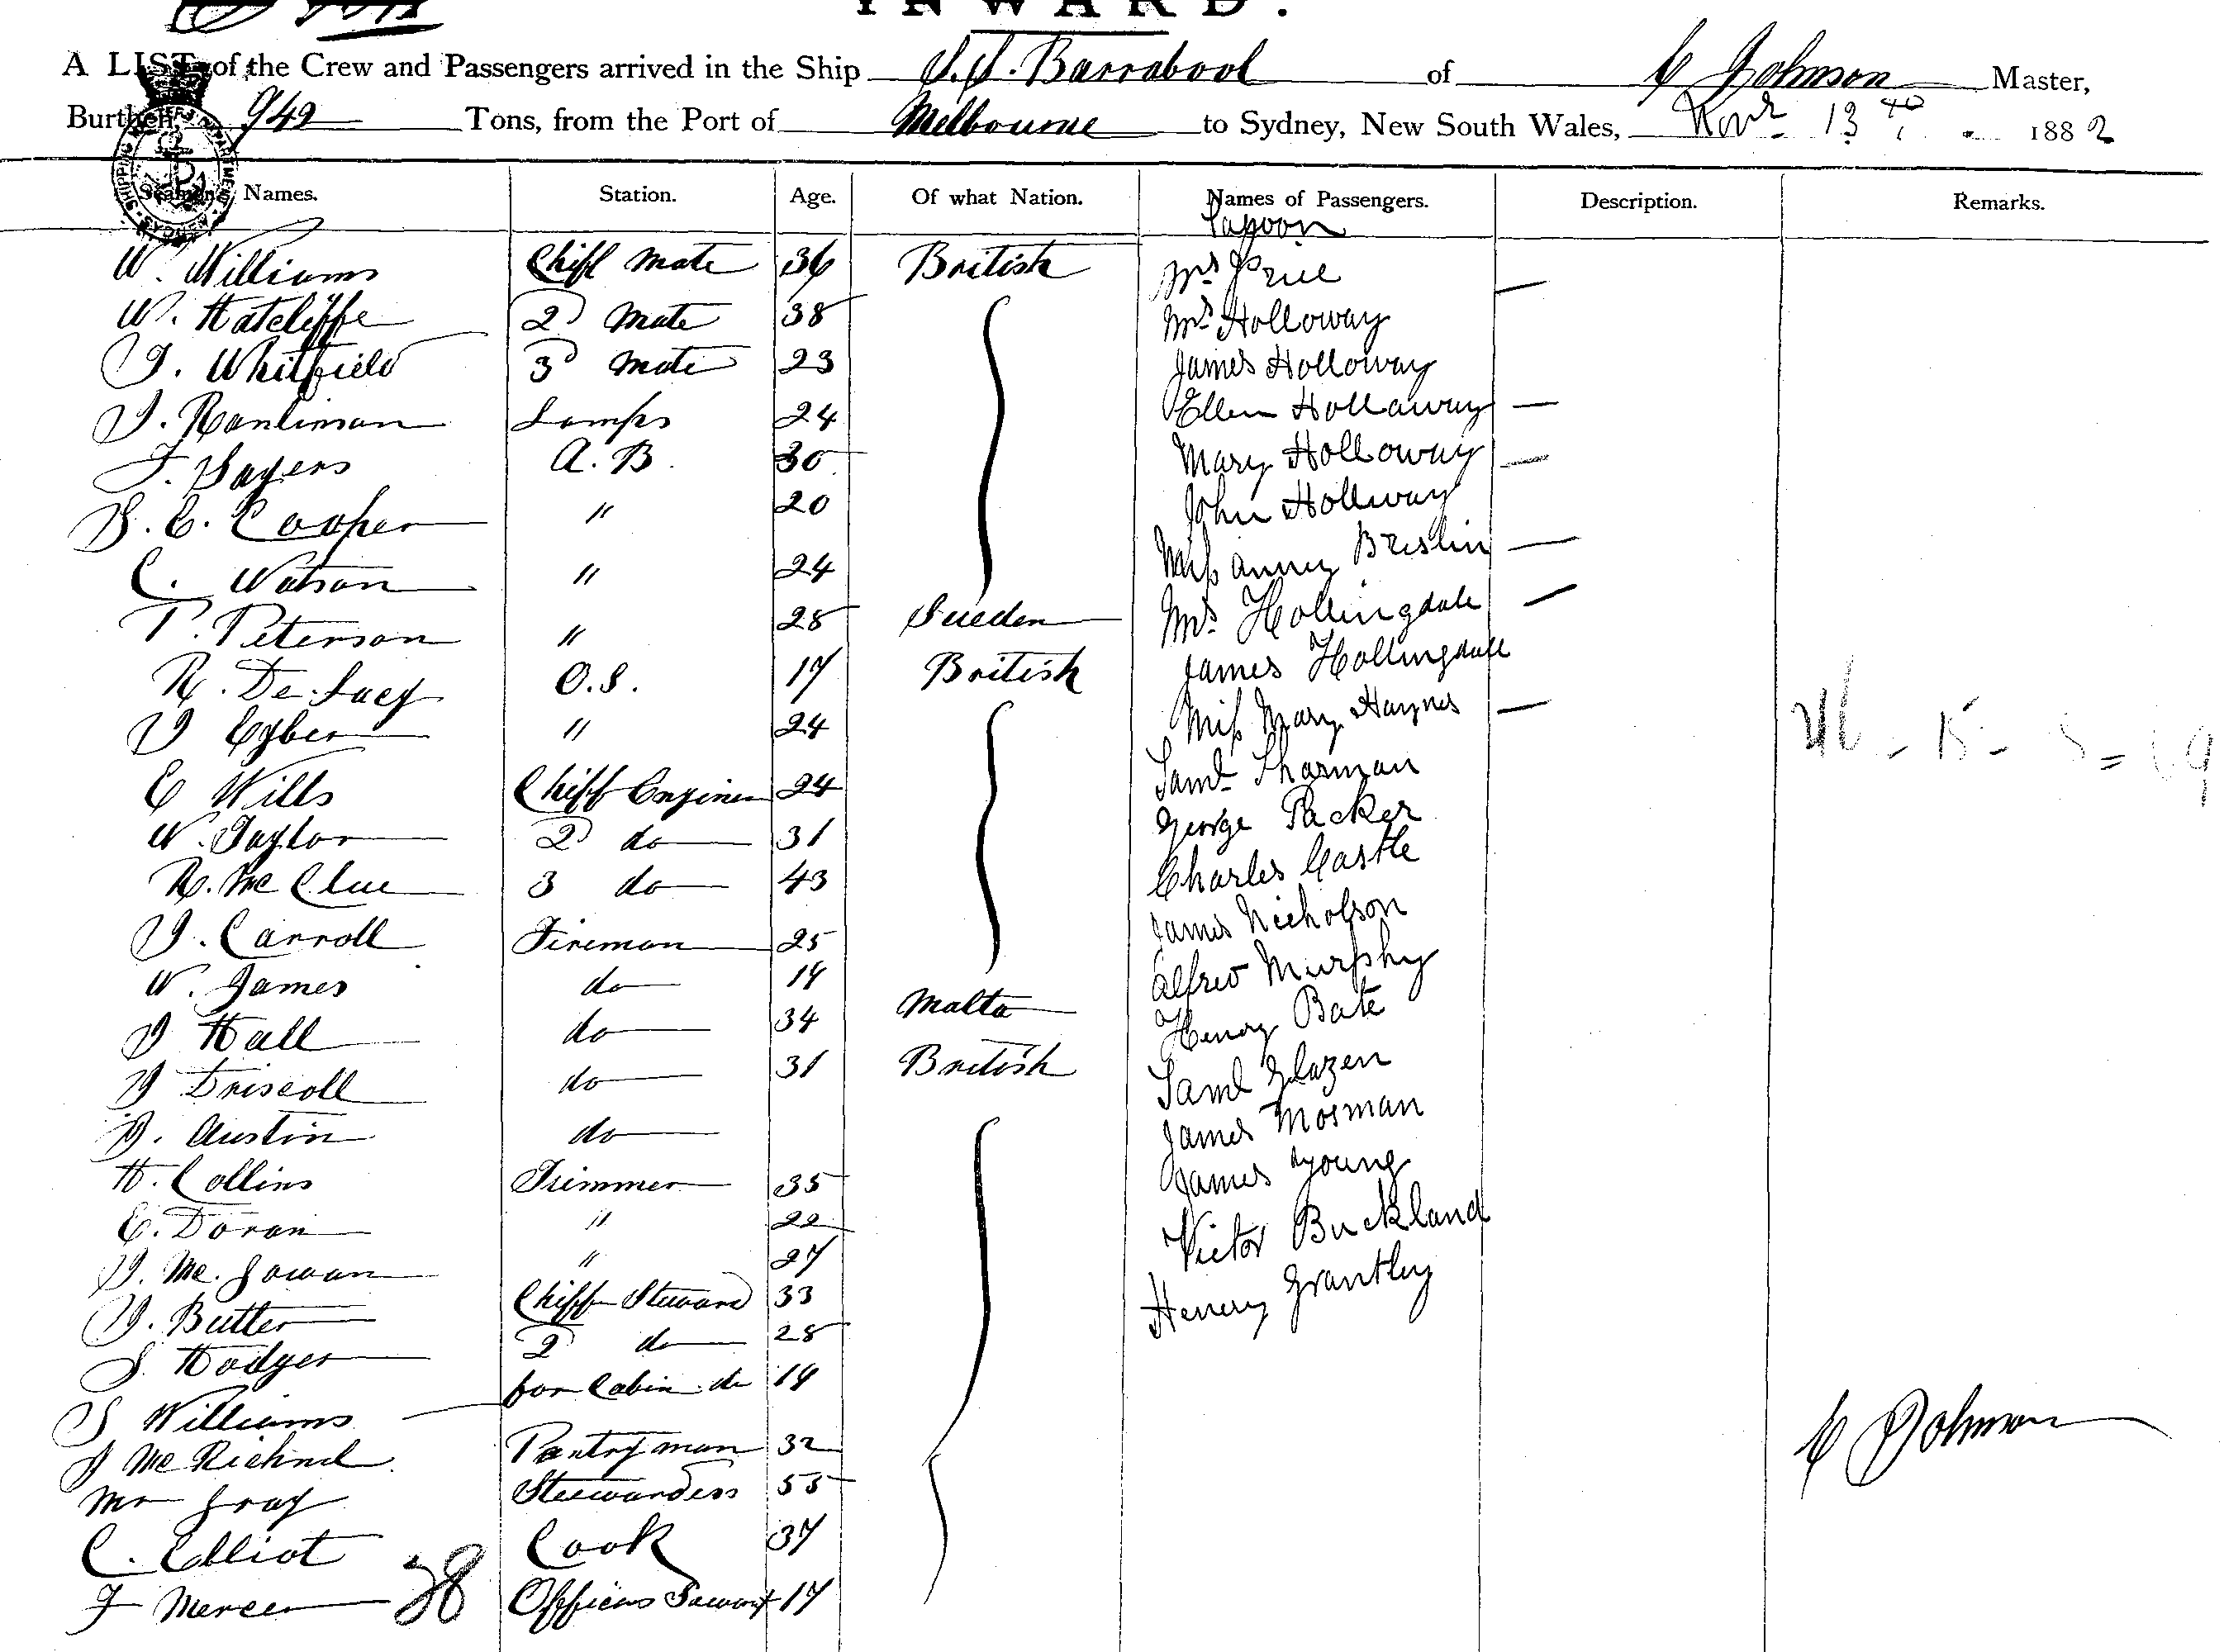 INWARD.
A LIST of the Crew and Passengers arrived in the Ship S.S. Barrabool of C Johnson Master,
Burthen, 949 Tons, from the Port of Melbourne to Sydney, New South Wales, Novr 13th 1882
Seamens Names. Station. Age. Of what Nation. Names of Passengers. Description. Remarks.
Saloon
W. Williams Chief Mate 36 British Mrs Price —
W. Hatcliffe 2d Mate 38 Mrs Holloway
J. Whitfield 3d Mate 23 James Holloway
J. Ranlinson Lamps 24 Ellen Hollaway —
F. Sayers A.B. 30 Mary Holloway —
S. C. Cooper " 20 John Hollway
C. Watson " 24 Miss Anney Breslin —
P. Peterson " 28 Sueden Mrs. Hollingdale —
R. De. Lacy O.S. 17 British James Hollingdale
J Cyber " 24 Miss Mary Haynes —
E Wills Chieff Enginer 24 Saml Sharman
W. Taylor 2d do 31 George Packer
R. Mc Clue 3 do 43 Charles Castle
J. Carroll Fireman 25 James Nicholson
W. James do 19 Alfred Murphy
J Hall do 34 Malta Henry Bate
J Driscoll do 31 British Saml Glazen
J. Austin do James Mosman
H. Collins Trimmer 35 James Young
E. Doran " 22 Victor Buckland
J. Mc. Gowan " 27 Henery Grantley
J. Butler Chieff Steward 33
S. Hodges 2d do 28
S Williams for Cabin do 19
J Mc Richnel Pantry man 32
Mrs Gray Steewardess 55
C. Elliot Cook 37
F Mercer 28 Officers Sarvant 17
C Johnson